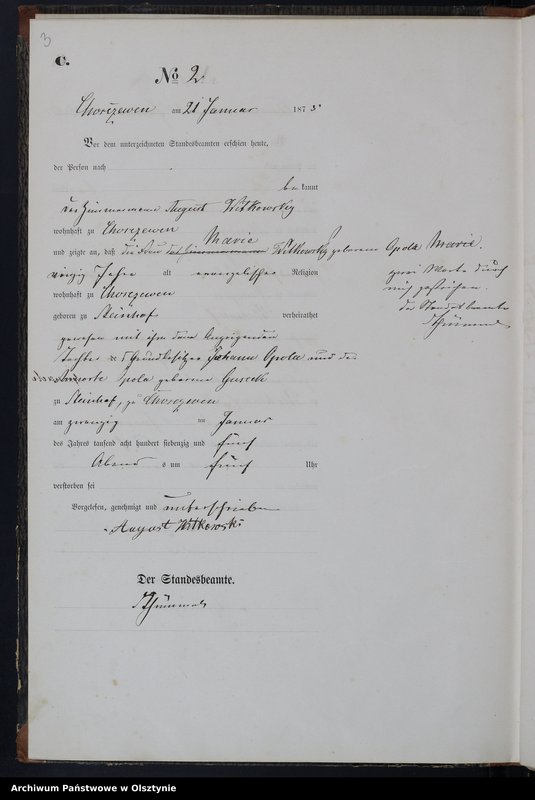 3
C.
No 2
Chorzewen am 21 Januar 1875
Vor dem unterzeichneten Standesbeamten erschien heute,
der Person nach
be kannt
der Zimmermann August Witkowsky
wohnhaft zu Chorzewen
und zeigte an, daß die Frau Marie Witkowsky geborene Opola Marie.
vierzig Jahre alt evangelischer Religion
zwei Worte durch
wohnhaft zu Chorczewen
gestrichen.
geboren zu Steinhof verheirathet
der Standesbeamte
gewesen mit ihm dem Anzeigenden
Tochter des Grundbesitzer Johann Opola und der
Opola geborene Guseck
zu Steinhof, zu Chorczewen
am zwanzig ten Januar
des Jahres tausend acht hundert siebenzig und fünf
Abends um fünf Uhr
verstorben sei
Vorgelesen, genehmigt und unterschrieben
August Witkowski
Der Standesbeamte.
Archiwum Państwowe w Olsztynie